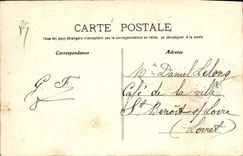 CARTE POSTALE
Tous les pays étrangers n'acceptent pas la correspondance au recto, se renseigner à la poste
Correspondance
Adresse
G F
Mr Daniel Lelong
Café de la ville
St Benoît s/ Loire
(Loiret)